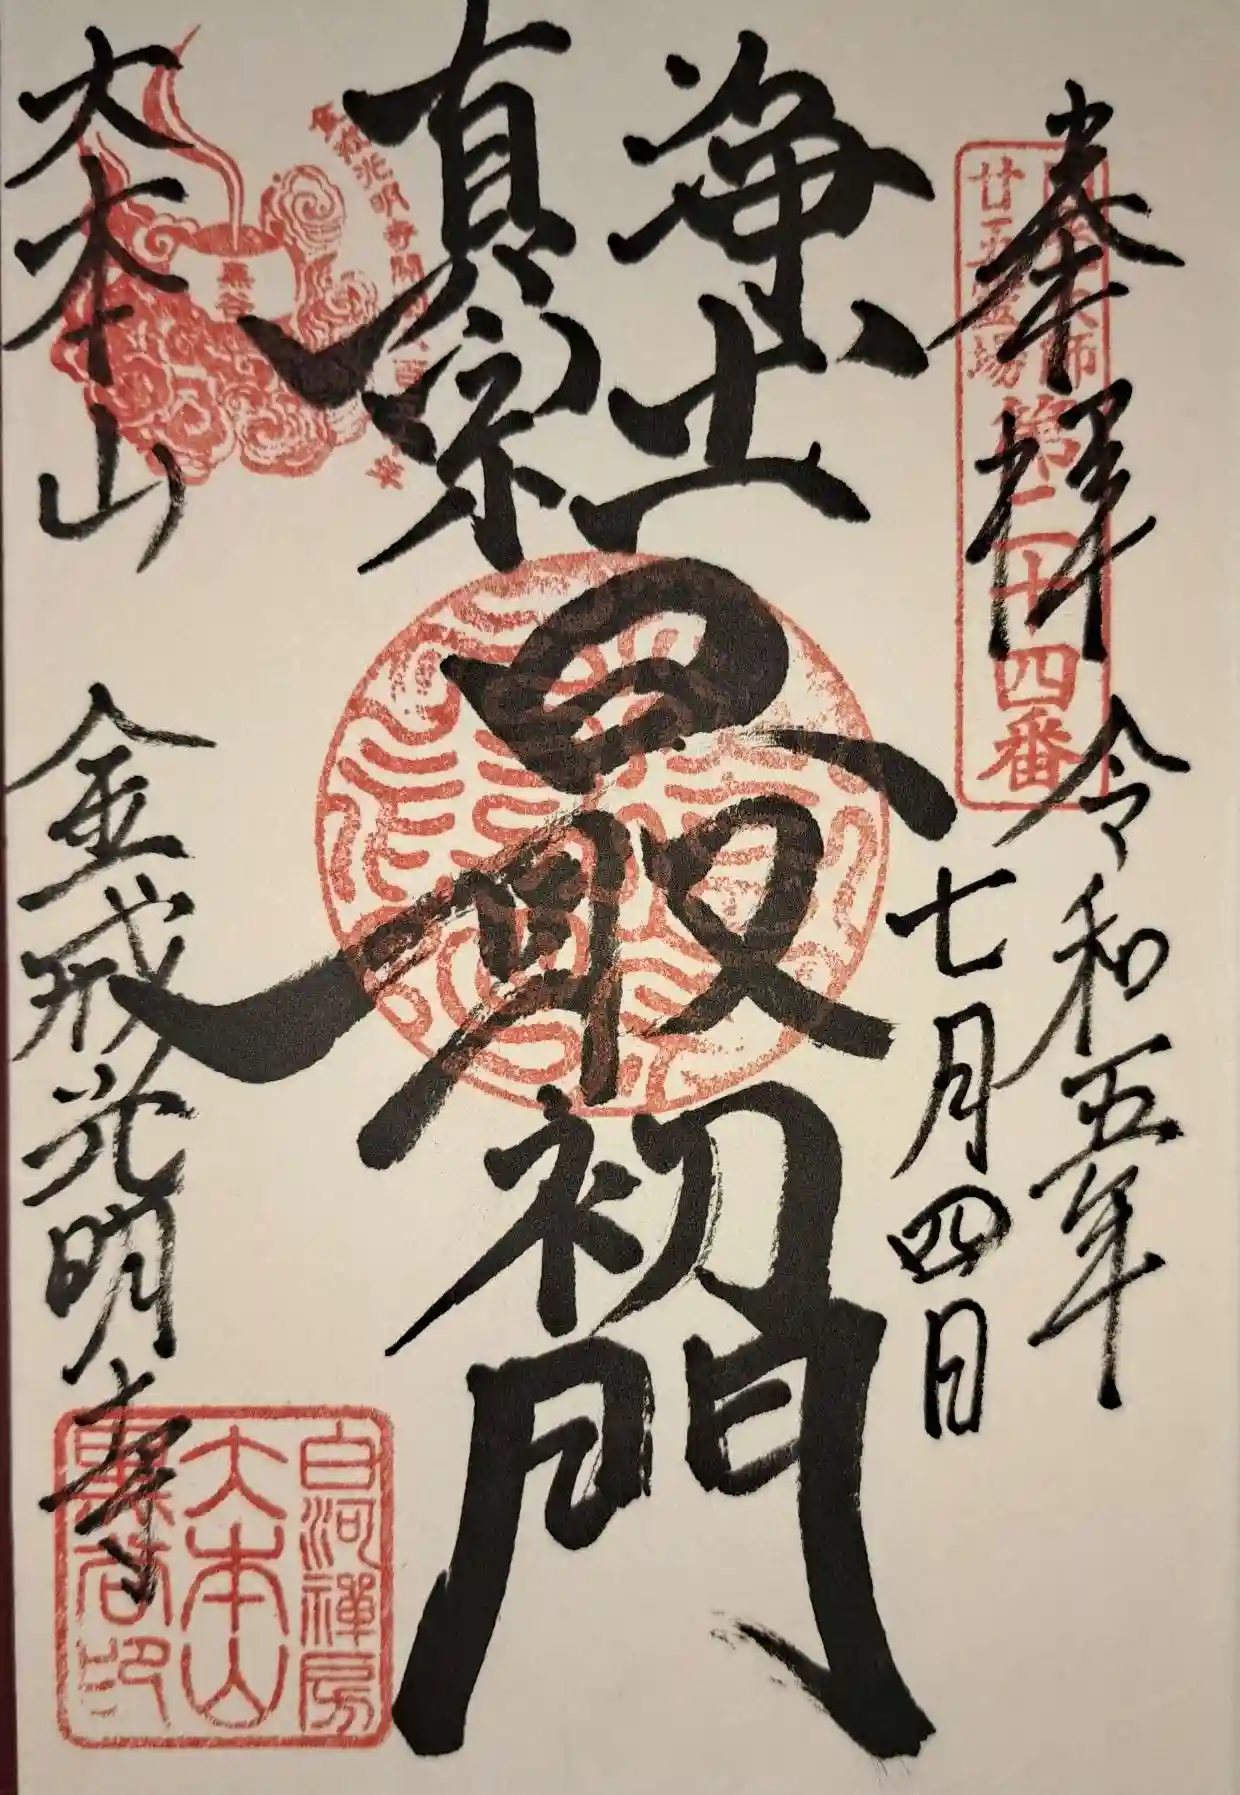 奉拝
令和五年
七月四日
浄土
真宗
最初門
大本山
金戒光明寺
廿五霊場
第二十四番
黒谷
白河禅房
大本山
黒谷印